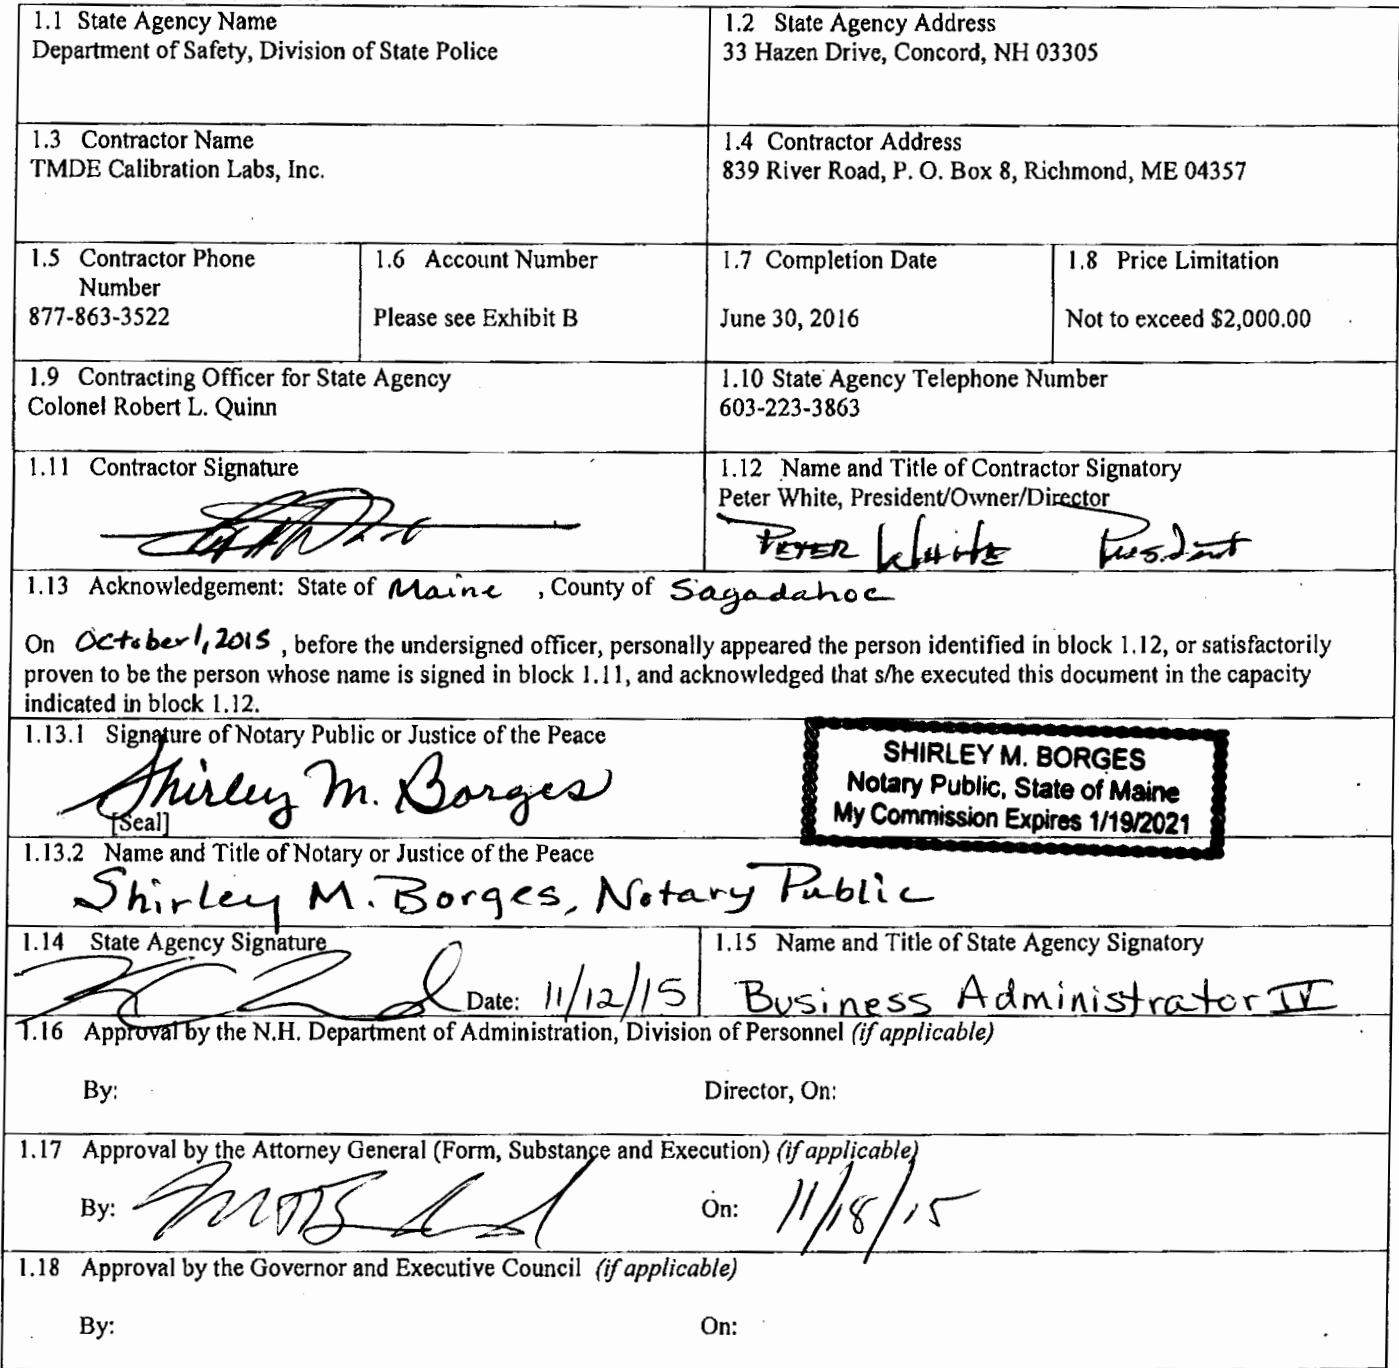 1.1 State Agency Name
Department of Safety, Division of State Police
1.2 State Agency Address
33 Hazen Drive, Concord, NH 03305
1.3 Contractor Name
TMDE Calibration Labs, Inc.
1.4 Contractor Address
839 River Road, P. O. Box 8, Richmond, ME 04357
1.5 Contractor Phone
Number
877-863-3522
1.6 Account Number
Please see Exhibit B
1.7 Completion Date
June 30, 2016
1.8 Price Limitation
Not to exceed $2,000.00
1.9 Contracting Officer for State Agency
Colonel Robert L. Quinn
1.10 State Agency Telephone Number
603-223-3863
1.11 Contractor Signature
1.12 Name and Title of Contractor Signatory
Peter White, President/Owner/Director
PETER White President
1.13 Acknowledgement: State of Maine , County of Sagadahoc
On October 1, 2015 , before the undersigned officer, personally appeared the person identified in block 1.12, or satisfactorily
proven to be the person whose name is signed in block 1.11, and acknowledged that s/he executed this document in the capacity
indicated in block 1.12.
1.13.1 Signature of Notary Public or Justice of the Peace
Shirley M. Borges
[Seal]
SHIRLEY M. BORGES
Notary Public, State of Maine
My Commission Expires 1/19/2021
1.13.2 Name and Title of Notary or Justice of the Peace
Shirley M. Borges, Notary Public
1.14 State Agency Signature
Date: 11/12/15
1.15 Name and Title of State Agency Signatory
Business Administrator IV
1.16 Approval by the N.H. Department of Administration, Division of Personnel (if applicable)
By:
Director, On:
1.17 Approval by the Attorney General (Form, Substance and Execution) (if applicable)
By:
On: 11/18/15
1.18 Approval by the Governor and Executive Council (if applicable)
By:
On: